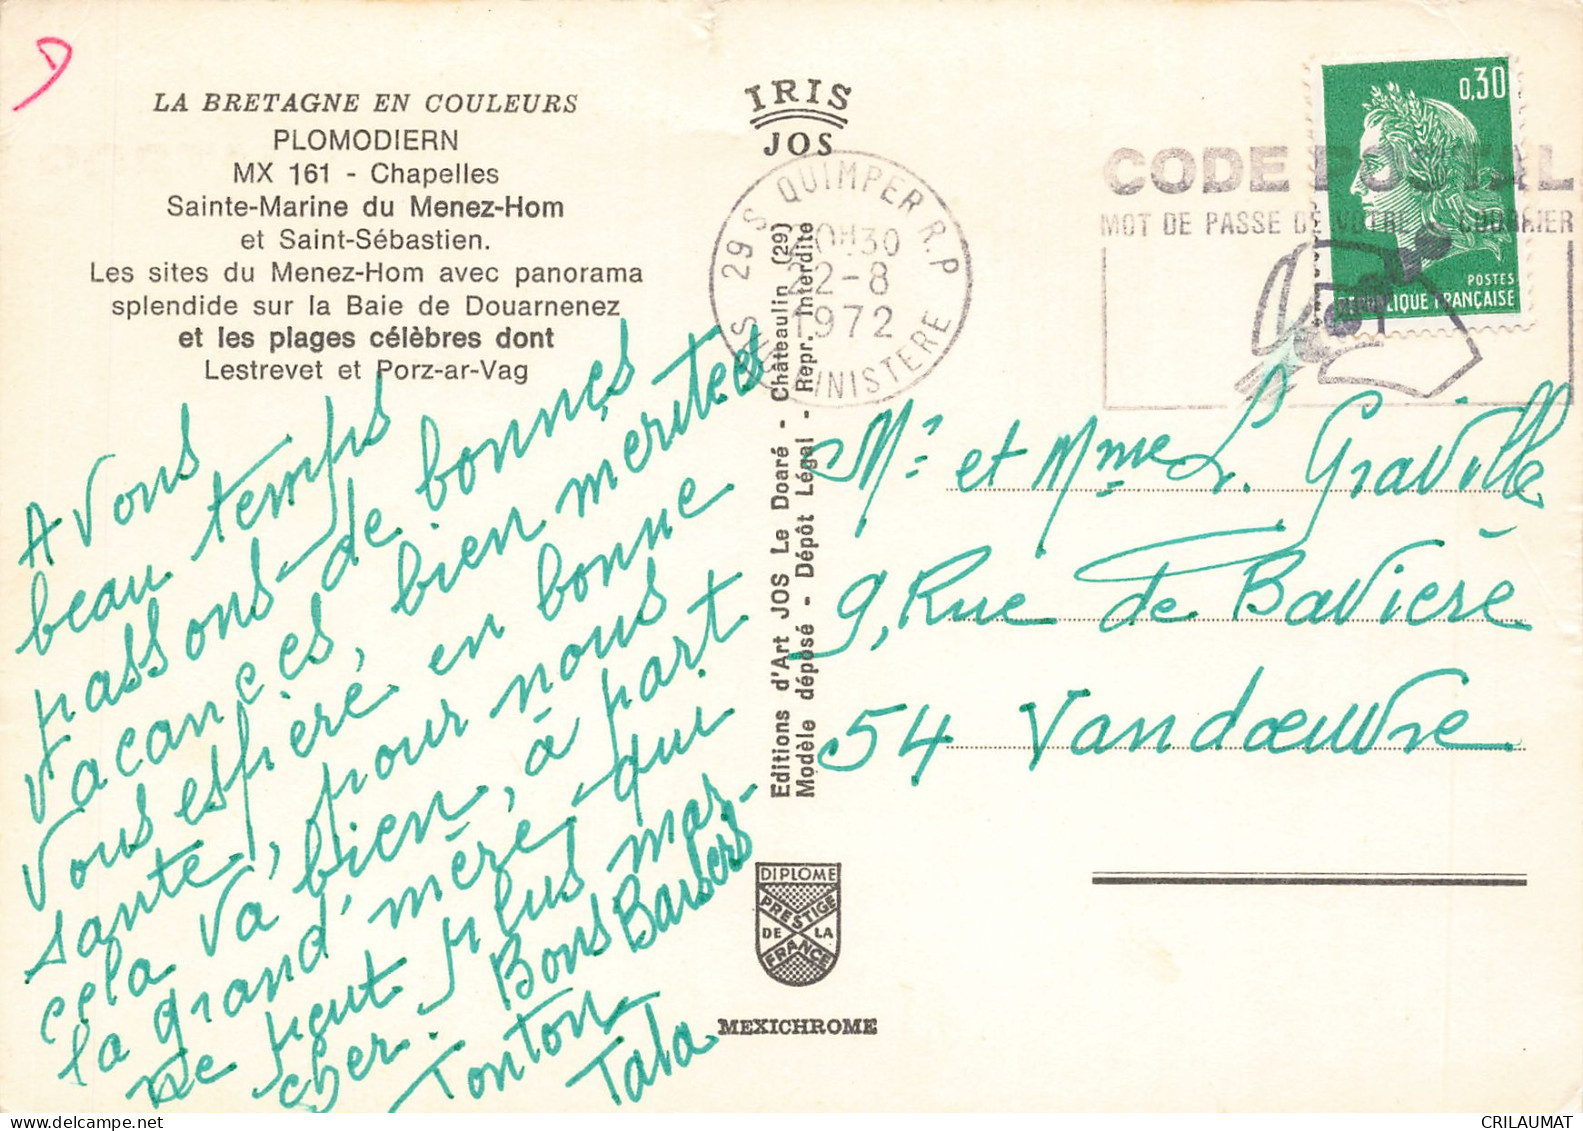 LA BRETAGNE EN COULEURS
PLOMODIERN
MX 161 - Chapelles
Sainte-Marine du Menez-Hom
et Saint-Sébastien.
Les sites du Menez-Hom avec panorama
splendide sur la Baie de Douarnenez
et les plages célèbres dont
Lestrevet et Porz-ar-Vag
Avons
beau temps
passons de bonnes
vacances, bien meritées
vous espere en bonne
sante, pour nous
cela va bien, à part
la grand'mère qui
ne peut plus mar-
cher. Bons Baisers
Tonton
Tata
IRIS
JOS
29 S QUIMPER R.P
20H30
22-8
1972
SUD FINISTERE
Editions d'Art JOS Le Doaré - Châteaulin (29)
Modèle déposé - Dépôt Légal - Repr. Interdite
DIPLOME
PRESTIGE
DE LA
FRANCE
MEXICHROME
0,30
POSTES
REPUBLIQUE FRANÇAISE
CODE POSTAL
MOT DE PASSE DE VOTRE COURRIER
Mr et Mme L. Graville
9, Rue de Bavière
54 Vandœuvre
CRILAUMAT